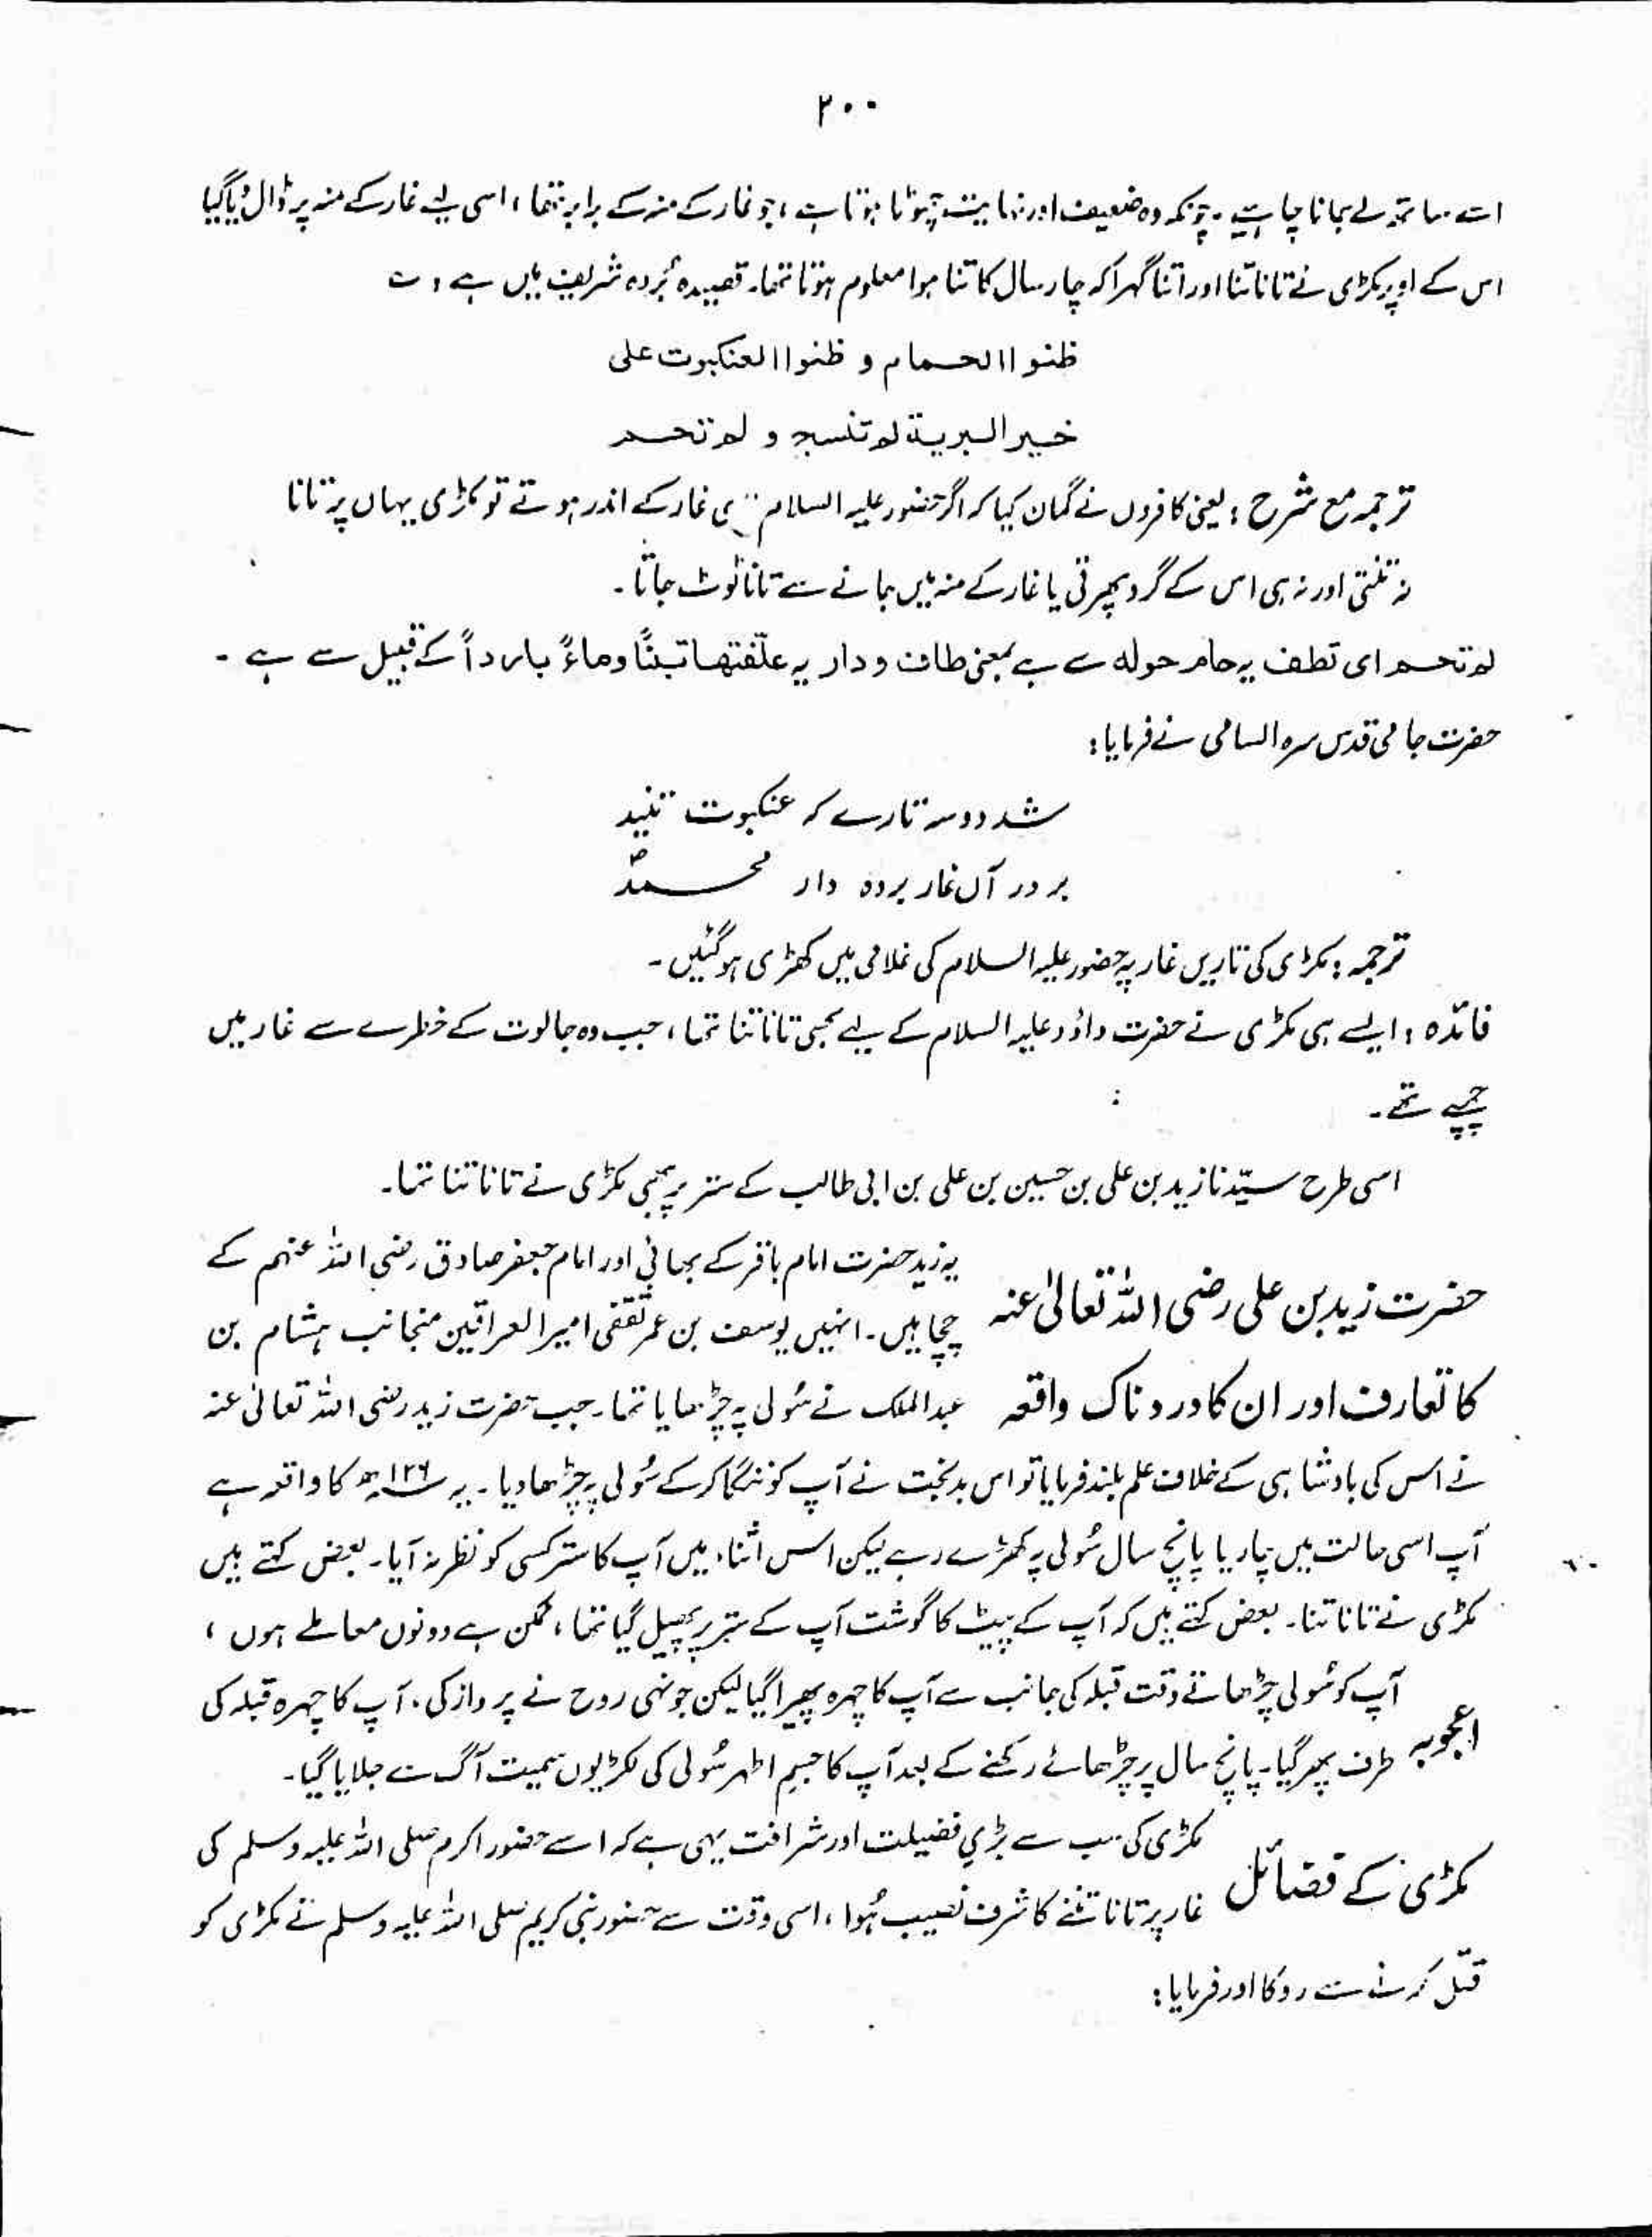 ۲۰۰
اسے ساتھ لے جانا چاہیے۔ چونکہ وہ ضعیف اور نہایت چھوٹا ہوتا ہے، جو غار کے منہ کے برابر تھا، اسی لیے غار کے منہ پر ڈال دیا گیا
اس کے اوپر مکڑی نے تانا تنا اور اتنا گہرا کہ چار سال کا تنا ہوا معلوم ہوتا تھا۔ قصیدہ بُردہ شریف میں ہے ؛ ؎
ظنوا الحمام و ظنوا العنکبوت علی
خیر البریة لم تنسج و لم تحم
ترجمہ مع شرح : یعنی کافروں نے گمان کیا کہ اگر حضور علیہ السلام ہی غار کے اندر ہوتے تو مکڑی یہاں پر تانا
نہ تنتی اور نہ ہی اس کے گرد پھرتی یا غار کے منہ میں جانے سے تانا ٹوٹ جاتا۔
لم تحم ای تطف یہ حام حولہ سے ہے بمعنی طاف و دار یہ علّفتھا تبناً و ماءً بارداً کے قبیل سے ہے۔
حضرت جامی قدس سرہ السامی نے فرمایا :
شد دو سہ تارے کہ عنکبوت تنید
بر در آں غار پردہ دار محمدؐ
ترجمہ : مکڑی کی تاریں غار پہ حضور علیہ السلام کی غلامی میں کھڑی ہو گئیں۔
فائدہ : ایسے ہی مکڑی نے حضرت داؤد علیہ السلام کے لیے بھی تانا تنا تھا، جب وہ جالوت کے خطرے سے غار میں
چھپے تھے۔
اسی طرح سیّدنا زید بن علی بن حسین بن علی بن ابی طالب کے ستر پر بھی مکڑی نے تانا تنا تھا۔
حضرت زید بن علی رضی اللہ تعالیٰ عنہ
کا تعارف اور ان کا دردناک واقعہ
یہ زید حضرت امام باقر کے بھائی اور امام جعفر صادق رضی اللہ عنہم کے
چچا ہیں۔ انہیں یوسف بن عمر ثقفی امیر العراقین منجانب ہشام بن
عبدالملک نے سُولی پہ چڑھایا تھا۔ جب حضرت زید رضی اللہ تعالیٰ عنہ
نے اس کی بادشاہی کے خلاف علم بلند فرمایا تو اس بدبخت نے آپ کو ننگا کر کے سُولی پہ چڑھا دیا۔ یہ ۱۲۶ھ کا واقعہ ہے
آپ اسی حالت میں چار یا پانچ سال سُولی پہ کھڑے رہے لیکن اس اثناء میں آپ کا ستر کسی کو نظر نہ آیا۔ بعض کہتے ہیں
مکڑی نے تانا تنا۔ بعض کہتے ہیں کہ آپ کے پیٹ کا گوشت آپ کے ستر پر پھیل گیا تھا، ممکن ہے دونوں معاملے ہوں ،
اعجوبہ
آپ کو سُولی چڑھاتے وقت قبلہ کی جانب سے آپ کا چہرہ پھیرا گیا لیکن جونہی روح نے پرواز کی، آپ کا چہرہ قبلہ کی
طرف پھر گیا۔ پانچ سال پر چڑھائے رکھنے کے بعد آپ کا جسم اطہر سُولی کی لکڑیوں سمیت آگ سے جلایا گیا۔
مکڑی کے فضائل
مکڑی کی سب سے بڑی فضیلت اور شرافت یہی ہے کہ اسے حضور اکرم صلی اللہ علیہ وسلم کی
غار پر تانا تننے کا شرف نصیب ہُوا، اسی وقت سے حضور نبی کریم صلی اللہ علیہ وسلم نے مکڑی کو
قتل کرنے سے روکا اور فرمایا :